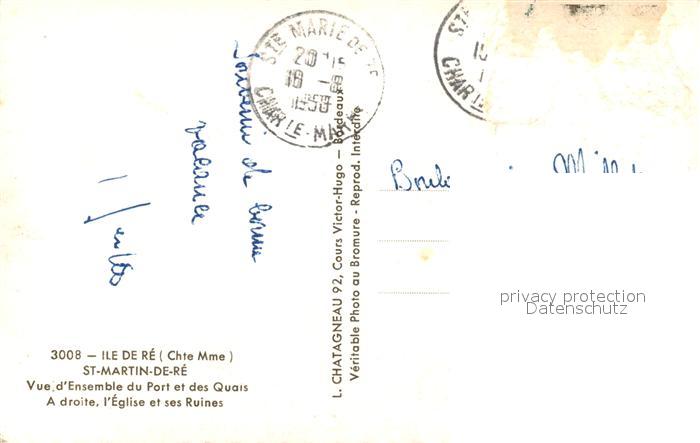 STE MARIE DE RE
18 - 8
1959
CHAR TE - MARME
Souvenir de bonne
vacance
L. CHATAGNEAU 92, Cours Victor-Hugo — Bordeaux
Véritable Photo au Bromure - Reprod. Interdite
STE
CHAR TE
privacy protection
Datenschutz
3008 — ILE DE RÉ ( Chte Mme )
ST-MARTIN-DE-RÉ
Vue d'Ensemble du Port et des Quais
A droite, l'Église et ses Ruines